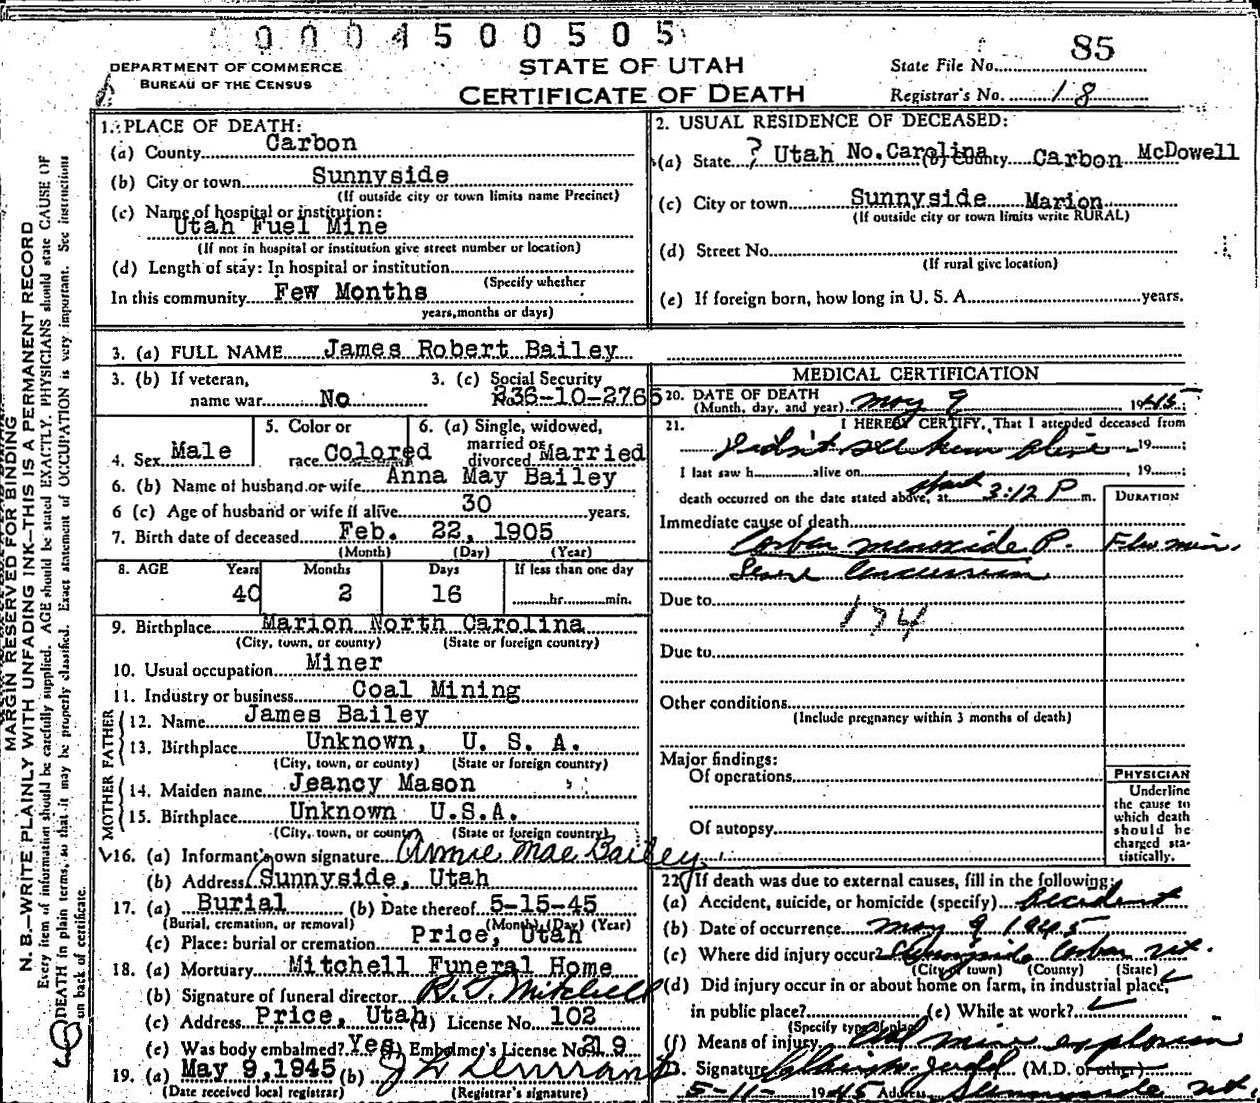 0004500505
85
DEPARTMENT OF COMMERCE
BUREAU OF THE CENSUS
STATE OF UTAH
CERTIFICATE OF DEATH
State File No.
Registrar's No. 18
MARGIN RESERVED FOR BINDING
N. B.—WRITE PLAINLY WITH UNFADING INK—THIS IS A PERMANENT RECORD
Every item of information should be carefully supplied. AGE should be stated EXACTLY. PHYSICIANS should state CAUSE OF
DEATH in plain terms, so that it may be properly classified. Exact statement of OCCUPATION is very important. See instructions
on back of certificate.
1. PLACE OF DEATH:
(a) County Carbon
(b) City or town Sunnyside
(If outside city or town limits name Precinct)
(c) Name of hospital or institution:
Utah Fuel Mine
(If not in hospital or institution give street number or location)
(d) Length of stay: In hospital or institution
(Specify whether
In this community Few Months
years, months or days)
2. USUAL RESIDENCE OF DECEASED:
(a) State ? Utah No. Carolina (b) County Carbon McDowell
(c) City or town Sunnyside Marion
(If outside city or town limits write RURAL)
(d) Street No.
(If rural give location)
(e) If foreign born, how long in U. S. A. years.
3. (a) FULL NAME James Robert Bailey
3. (b) If veteran,
name war No
3. (c) Social Security
No. 236-10-2765
4. Sex Male
5. Color or
race Colored
6. (a) Single, widowed,
married or
divorced Married
6. (b) Name of husband or wife Anna May Bailey
6 (c) Age of husband or wife if alive 30 years.
7. Birth date of deceased Feb. 22, 1905
(Month) (Day) (Year)
8. AGE Years Months Days If less than one day
40 2 16 hr. min.
9. Birthplace Marion North Carolina
(City, town, or county) (State or foreign country)
10. Usual occupation Miner
11. Industry or business Coal Mining
FATHER
12. Name James Bailey
13. Birthplace Unknown, U. S. A.
(City, town, or county) (State or foreign country)
MOTHER
14. Maiden name Jeancy Mason
15. Birthplace Unknown U.S.A.
(City, town, or county) (State or foreign country)
16. (a) Informant's own signature Annie Mae Bailey
(b) Address Sunnyside, Utah
17. (a) Burial (b) Date thereof 5-15-45
(Burial, cremation, or removal) (Month) (Day) (Year)
(c) Place: burial or cremation Price, Utah
18. (a) Mortuary Mitchell Funeral Home
(b) Signature of funeral director R. J. Mitchell
(c) Address Price, Utah (d) License No. 102
(e) Was body embalmed? Yes (f) Embalmer's License No. 219
19. (a) May 9, 1945 (b)
(Date received local registrar) (Registrar's signature)
MEDICAL CERTIFICATION
20. DATE OF DEATH
(Month, day, and year) May 9 1945
21. I HEREBY CERTIFY, That I attended deceased from
Didn't see him alive 19
I last saw h alive on , 19
death occurred on the date stated above, at 3:12 P m.
DURATION
Immediate cause of death
Carbon monoxide P. Few min.
Concussion
Due to
174
Due to
Other conditions
(Include pregnancy within 3 months of death)
Major findings:
Of operations
Of autopsy
PHYSICIAN
Underline
the cause to
which death
should be
charged sta-
tistically.
22. If death was due to external causes, fill in the following:
(a) Accident, suicide, or homicide (specify) Accident
(b) Date of occurrence May 9 1945
(c) Where did injury occur? Sunnyside Carbon Ut.
(City or town) (County) (State)
(d) Did injury occur in or about home on farm, in industrial place,
in public place? (e) While at work?
(Specify type of place)
(f) Means of injury Coal mine explosion
23. Signature (M.D. or other)
5-11-1945 Address Sunnyside Ut.